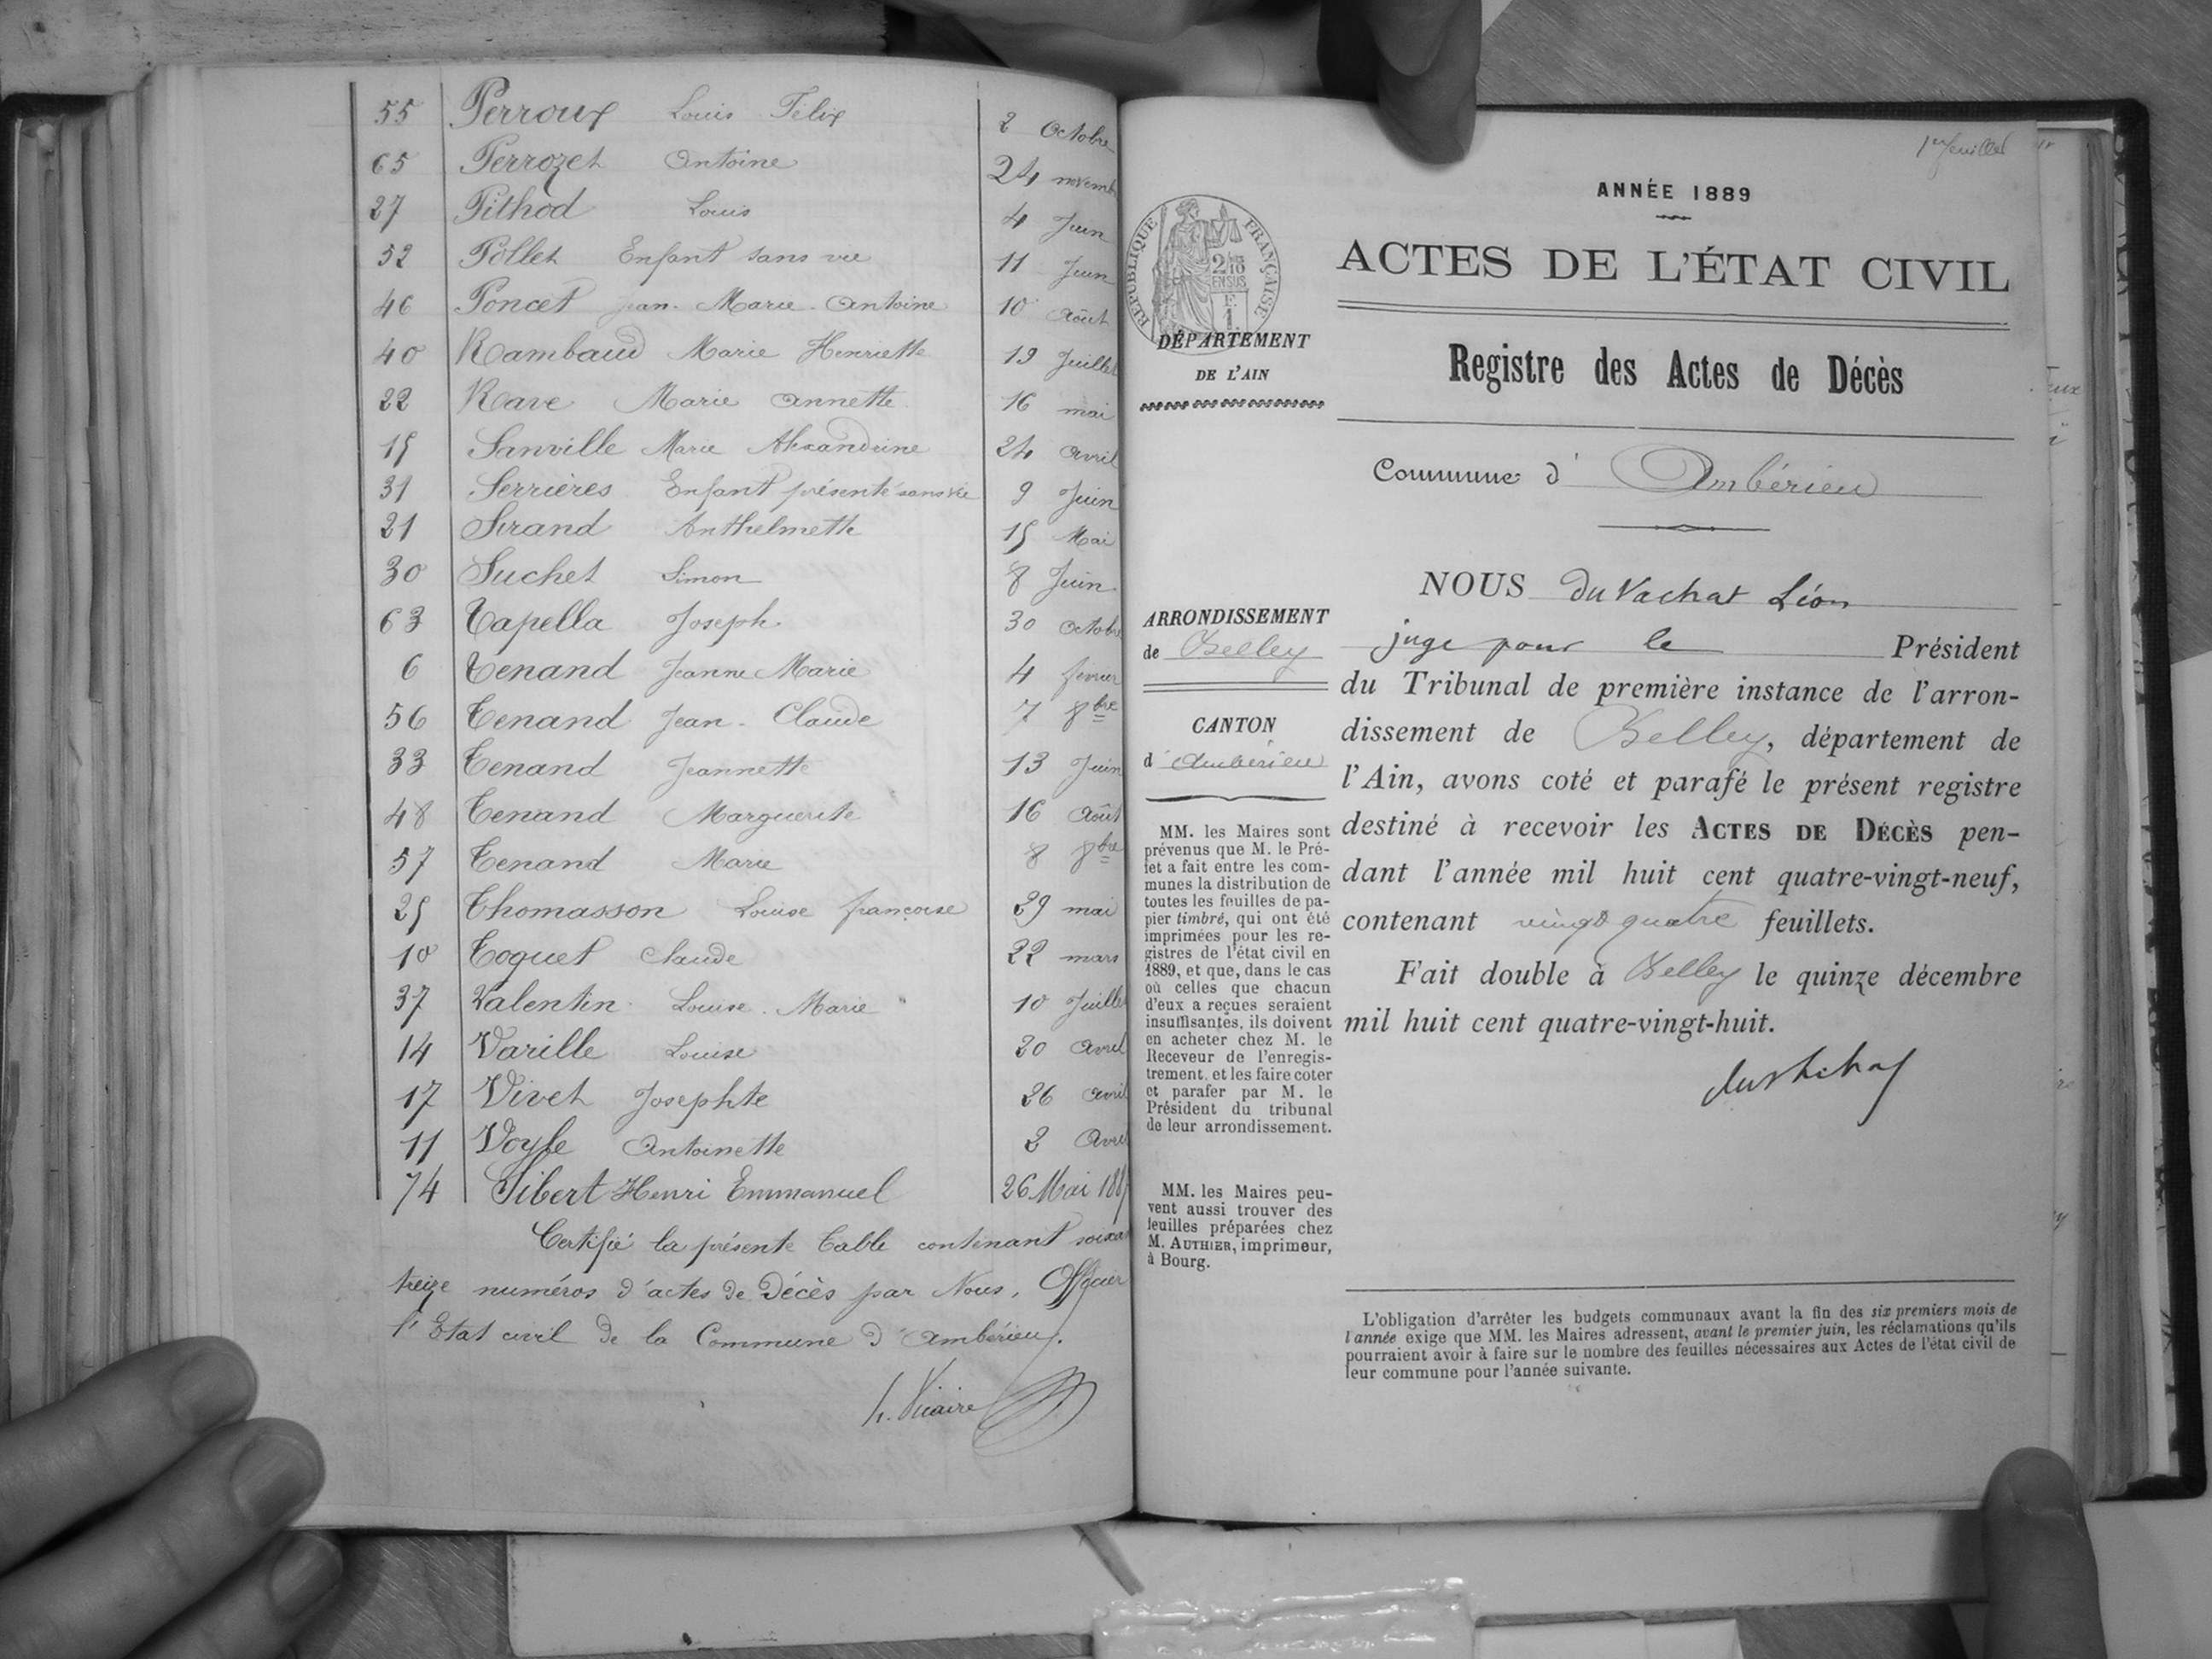 55 Perroux Louis Félix 2 Octobre
65 Perrozet Antoine 24 novemb
27 Pithod Louis 4 Juin
52 Pollet Enfant sans vie 11 Juin
46 Poncet Jean-Marie-Antoine 10 Août
40 Rambaud Marie Henriette 19 Juillet
22 Rave Marie Annette 16 mai
15 Sanville Marie Alexandrine 24 Avril
31 Serrières Enfant présenté sans vie 9 Juin
21 Sirand Anthelmette 15 Mai
30 Suchet Simon 8 Juin
63 Tapella Joseph 30 Octobre
6 Tenand Jeanne Marie 4 février
56 Tenand Jean-Claude 7 8bre
33 Tenand Jeannette 13 Juin
48 Tenand Marguerite 16 Août
57 Tenand Marie 8 8bre
25 Thomasson Louise françoise 29 mai
10 Toquet Claude 22 mars
37 Valentin Louise-Marie 10 Juillet
14 Varille Louise 20 Avril
17 Vivet Josephte 26 avril
11 Voyle Antoinette 2 Avril
74 Sibert Henri Emmanuel 26 Mai 188
Certifié la présente Table contenant soixan
treize numéros d'actes de Décès par Nous, Officier
l'Etat civil de la Commune d'Ambérieu.
h. Vicaire
1er feuillet
ANNÉE 1889
ACTES DE L'ÉTAT CIVIL
RÉPUBLIQUE FRANÇAISE
2/10 EN SUS
F. 1.
DÉPARTEMENT
DE L'AIN
Registre des Actes de Décès
Commune d' Ambérieu
ARRONDISSEMENT
de Belley
CANTON
d' Ambérieu
MM. les Maires sont
prévenus que M. le Pré-
fet a fait entre les com-
munes la distribution de
toutes les feuilles de pa-
pier timbré, qui ont été
imprimées pour les re-
gistres de l'état civil en
1889, et que, dans le cas
où celles que chacun
d'eux a reçues seraient
insuffisantes, ils doivent
en acheter chez M. le
Receveur de l'enregis-
trement, et les faire coter
et parafer par M. le
Président du tribunal
de leur arrondissement.
MM. les Maires peu-
vent aussi trouver des
feuilles préparées chez
M. AUTHIER, imprimeur,
à Bourg.
NOUS du Vachat Léon
juge pour le Président
du Tribunal de première instance de l'arron-
dissement de Belley, département de
l'Ain, avons coté et parafé le présent registre
destiné à recevoir les ACTES DE DÉCÈS pen-
dant l'année mil huit cent quatre-vingt-neuf,
contenant vingt quatre feuillets.
Fait double à Belley le quinze décembre
mil huit cent quatre-vingt-huit.
duvachat
L'obligation d'arrêter les budgets communaux avant la fin des six premiers mois de
l'année exige que MM. les Maires adressent, avant le premier juin, les réclamations qu'ils
pourraient avoir à faire sur le nombre des feuilles nécessaires aux Actes de l'état civil de
leur commune pour l'année suivante.